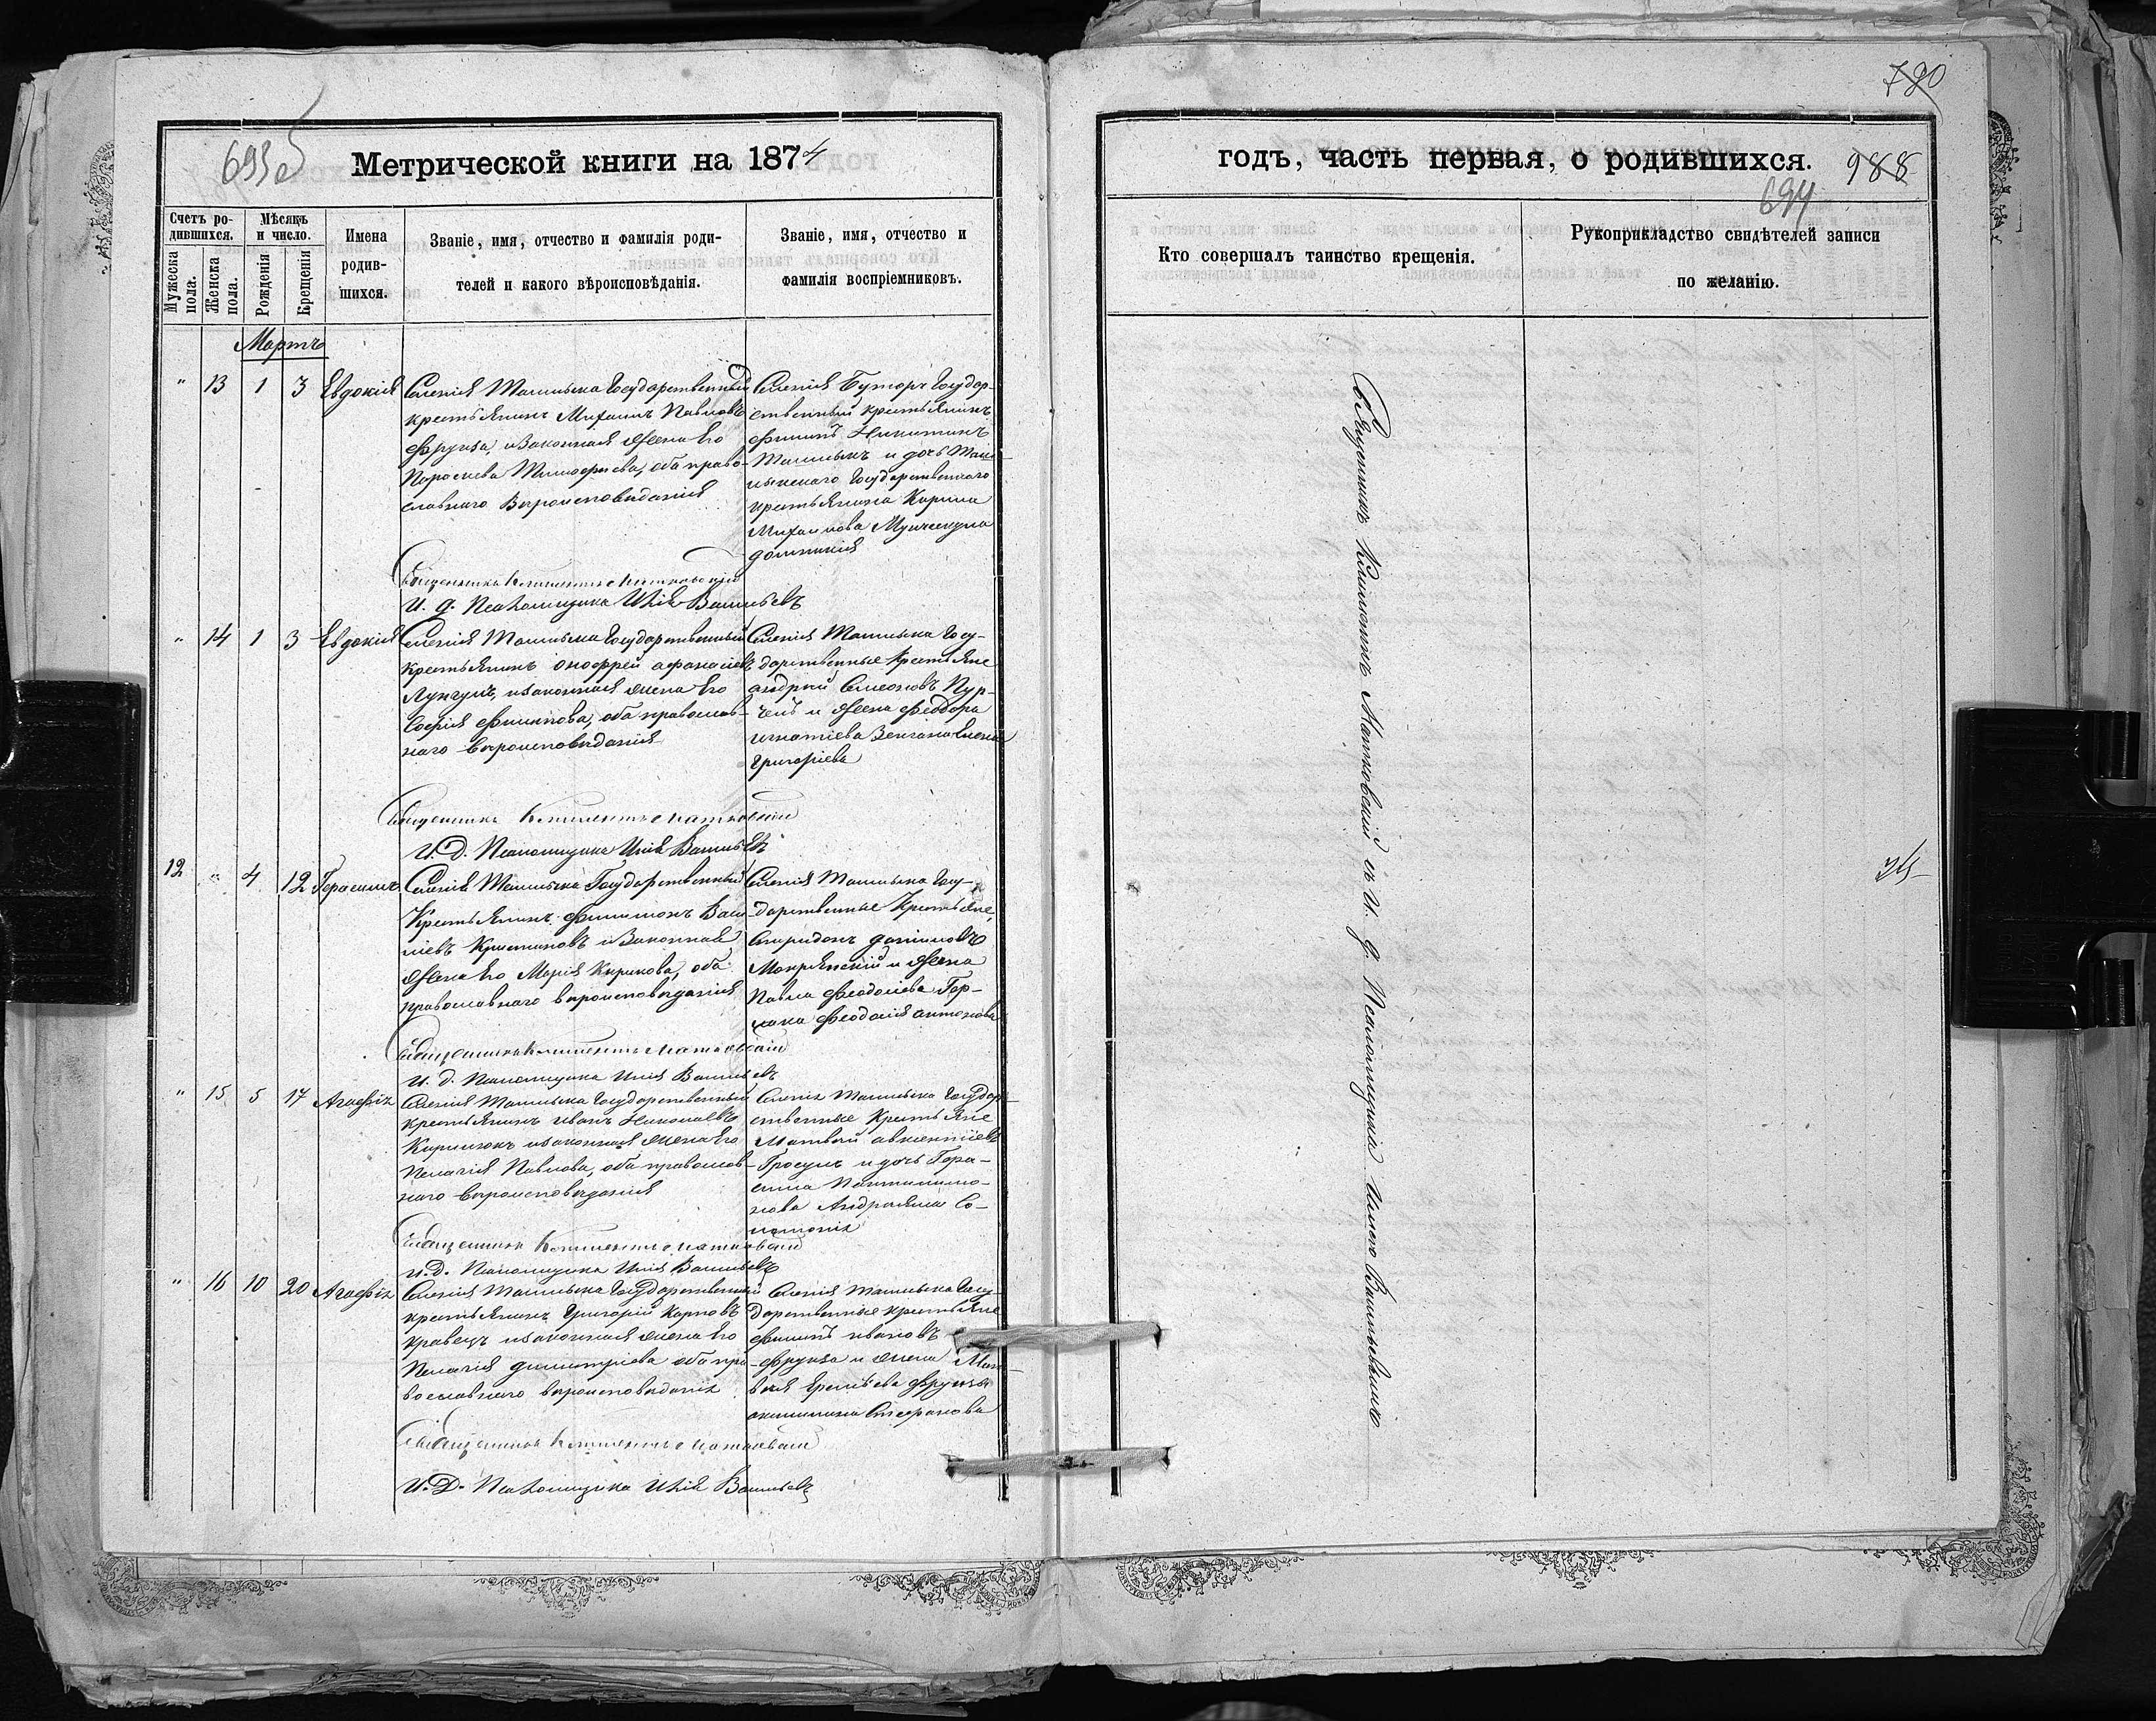 693 об
Метрической книги на 1874
Счетъ ро-
дившихся.
Мужеска
пола.
Женска
пола.
Мѣсяцъ
и число.
Рожденія
Крещенія
Имена
родив-
шихся.
Званіе, имя, отчество и фамилія роди-
телей и какого вѣроисповѣданія.
Званіе, имя, отчество и
фамилія воспріемниковъ.
Мартъ
" 13 1 3 Евдокія
Селенія Ташлыка Государственный
крестьянинъ Михаилъ Павловъ
Фрунза, и Законная Жена Его
Параскева Тимофеева, оба право-
славнаго Вероисповеданія
Селенія Буторъ Государ-
ственный крестьянинъ
Филипъ Никитинъ
и дочь Таш-
лыкскаго Государственнаго
крестьянина Кирила
Михаилова
Священникъ Климентъ Матковскій
И. д. Псаломщика Илія Васильевъ
" 14 1 3 Евдокія
Селенія Ташлыка Государственный
Крестьянинъ онофрей афанасіевъ
Лунгулъ, и законная жена Его
Софія Филипова, оба православ-
наго вероисповеданія
Селенія Ташлыка Госу-
дарственные Крестьяне
андрей Симеоновъ Пур-
челъ и Жена Феодора
игнатіева Елена
Григоріева
Священникъ Климентъ Матковскій
И. Д. Псаломщика Илія Васильевъ
12 " 4 12 Герасимъ
Селенія Ташлыка Государственный
Крестьянинъ Филимонъ Васи-
ліевъ Кристиновъ и Законная
Жена Его Марія Кирилова, оба
православнаго вероисповеданія
Селенія Ташлыка Госу-
дарственные Крестьяне,
Спиридонъ даниловъ
Мокрянскій и Жена
Павла Феодосіева Гер-
лака Феодосія антонова
Священникъ Климентъ Матковскій
И. д. Псаломщика Илія Васильевъ
" 15 5 17 Агафія
Селенія Ташлыка Государственный
крестьянинъ иванъ Николаевъ
Кирилюкъ и законная жена Его
Пелагія Павлова, оба православ-
наго вероисповеданія
Селенія Ташлыка Государ-
ственные Крестьяне
Матвей авксентіевъ
Гросулъ и дочь Гера-
сима Пантилимо-
нова Андріяша Со-
ломонія
Священникъ Климентъ Матковскій
И. Д. Псаломщика Илія Васильевъ
" 16 10 20 Агафія
Селенія Ташлыка Государственный
крестьянинъ Григорій Карповъ
Кравецъ и законная жена Его
Пелагія димитріева оба пра-
вославнаго вероисповеданія
Селенія Ташлыка Госу-
дарственные крестьяне
Филипъ ивановъ
Фрунза и жена Мат-
вея Фрунзы
акилина Стефанова
Священникъ Климентъ Матковскій
И. Д. Псаломщика Илія Васильевъ
790
годъ, часть первая, о родившихся.
988
694
Кто совершалъ таинство крещенія.
Рукоприкладство свидѣтелей записи
по желанію.
Священникъ Климентъ Матковскій съ И. д. Псаломщика Иліею Васильевымъ